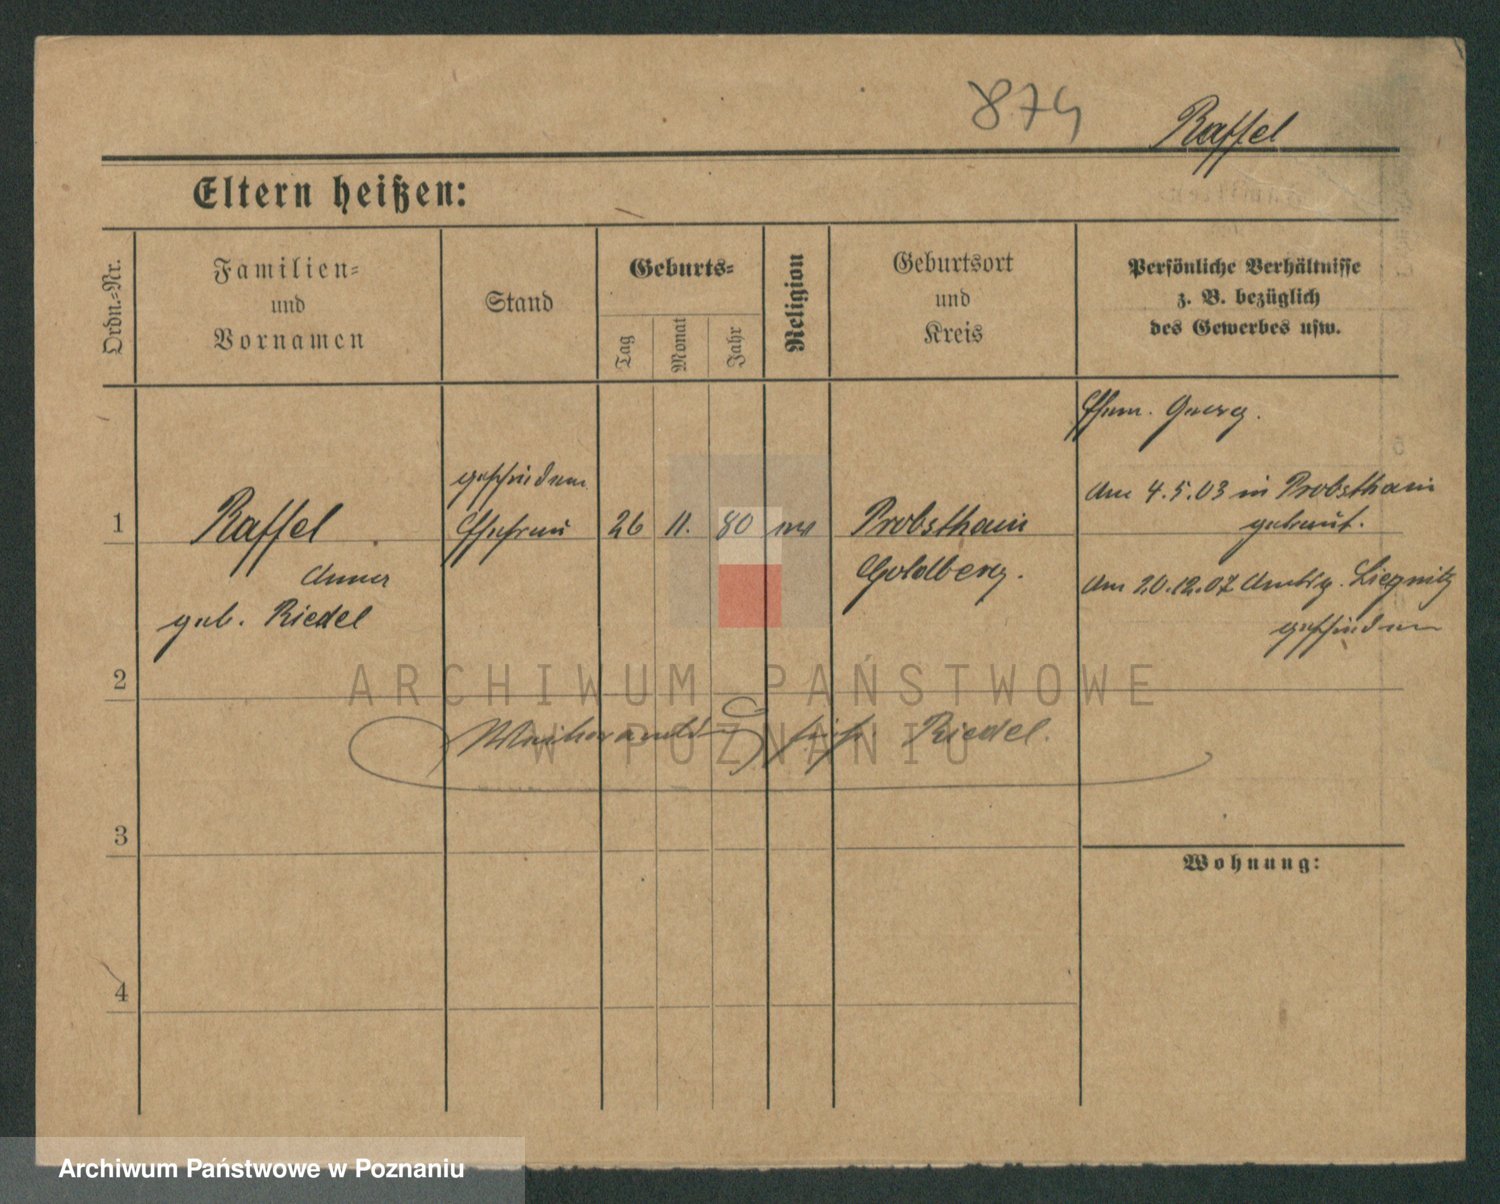 874
Raffel
Eltern heißen:
Ordn.-Nr.
Familien-
und
Vornamen
Stand
Geburts-
Tag
Monat
Jahr
Religion
Geburtsort
und
Kreis
Persönliche Verhältnisse
z. B. bezüglich
des Gewerbes usw.
Ehem. Georg.
1
Raffel
Anna
geb. Riedel
geschiedene
Ehefrau
26
11.
80
ev
Probsthain
Goldberg.
Am 4.5.03 in Probsthain
getraut.
Am 20.12.07 Liegnitz
geschieden
2
Riedel.
3
Wohnung:
4
ARCHIWUM PAŃSTWOWE
W POZNANIU
Archiwum Państwowe w Poznaniu